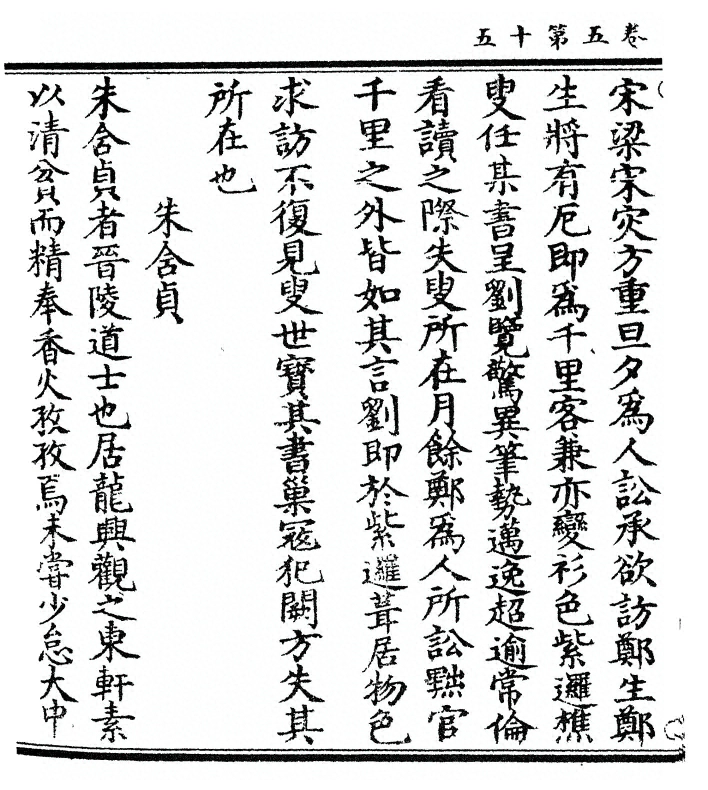 卷五第十五
宋梁宋灾方重旦夕為人訟承欲訪鄭生鄭
生將有厄即為千里客兼亦變衫色紫邏樵
叟任某書呈劉覽驚異筆勢邁逸超逾常倫
看讀之際失叟所在月餘鄭為人所訟黜官
千里之外皆如其言劉即於紫邏葺居物色
求訪不復見叟世寶其書巢寇犯闕方失其
所在也
朱含貞
朱含貞者晉陵道士也居龍興觀之東軒素
以清貧而精奉香火孜孜焉未嘗少怠大中